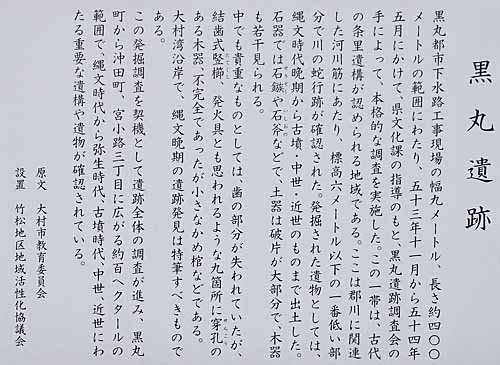 黒丸遺跡
黒丸都市下水路工事現場の幅九メートル、長さ約四〇〇
メートルの範囲にわたり、五十三年十一月から五十四年
五月にかけて、県文化課の指導のもと、黒丸遺跡調査会の
手によって、本格的な調査を実施した。この一帯は、古代
の条里遺構が認められる地域である。ここは郡川に関連
した河川筋にあたり、標高六メートル以下の一番低い部
分で川の蛇行跡が確認された。発掘された遺物としては、
縄文時代晩期から古墳・中世・近世のものまで出土した。
石器では石鏃や石斧などで、土器は破片が大部分で、木器
も若干見られる。
中でも貴重なものとしては、歯の部分が失われていたが、
結歯式竪櫛、発火具とも思われるような九箇所に穿孔の
ある木器、不完全であったが小さなかめ棺などである。
大村湾沿岸で、縄文晩期の遺跡発見は特筆すべきもので
ある。
この発掘調査を契機として遺跡全体の調査が進み、黒丸
町から沖田町、宮小路三丁目に広がる約百ヘクタールの
範囲で、縄文時代から弥生時代、古墳時代、中世、近世にわ
たる重要な遺構や遺物が確認されている。
原文 大村市教育委員会
設置 竹松地区地域活性化協議会